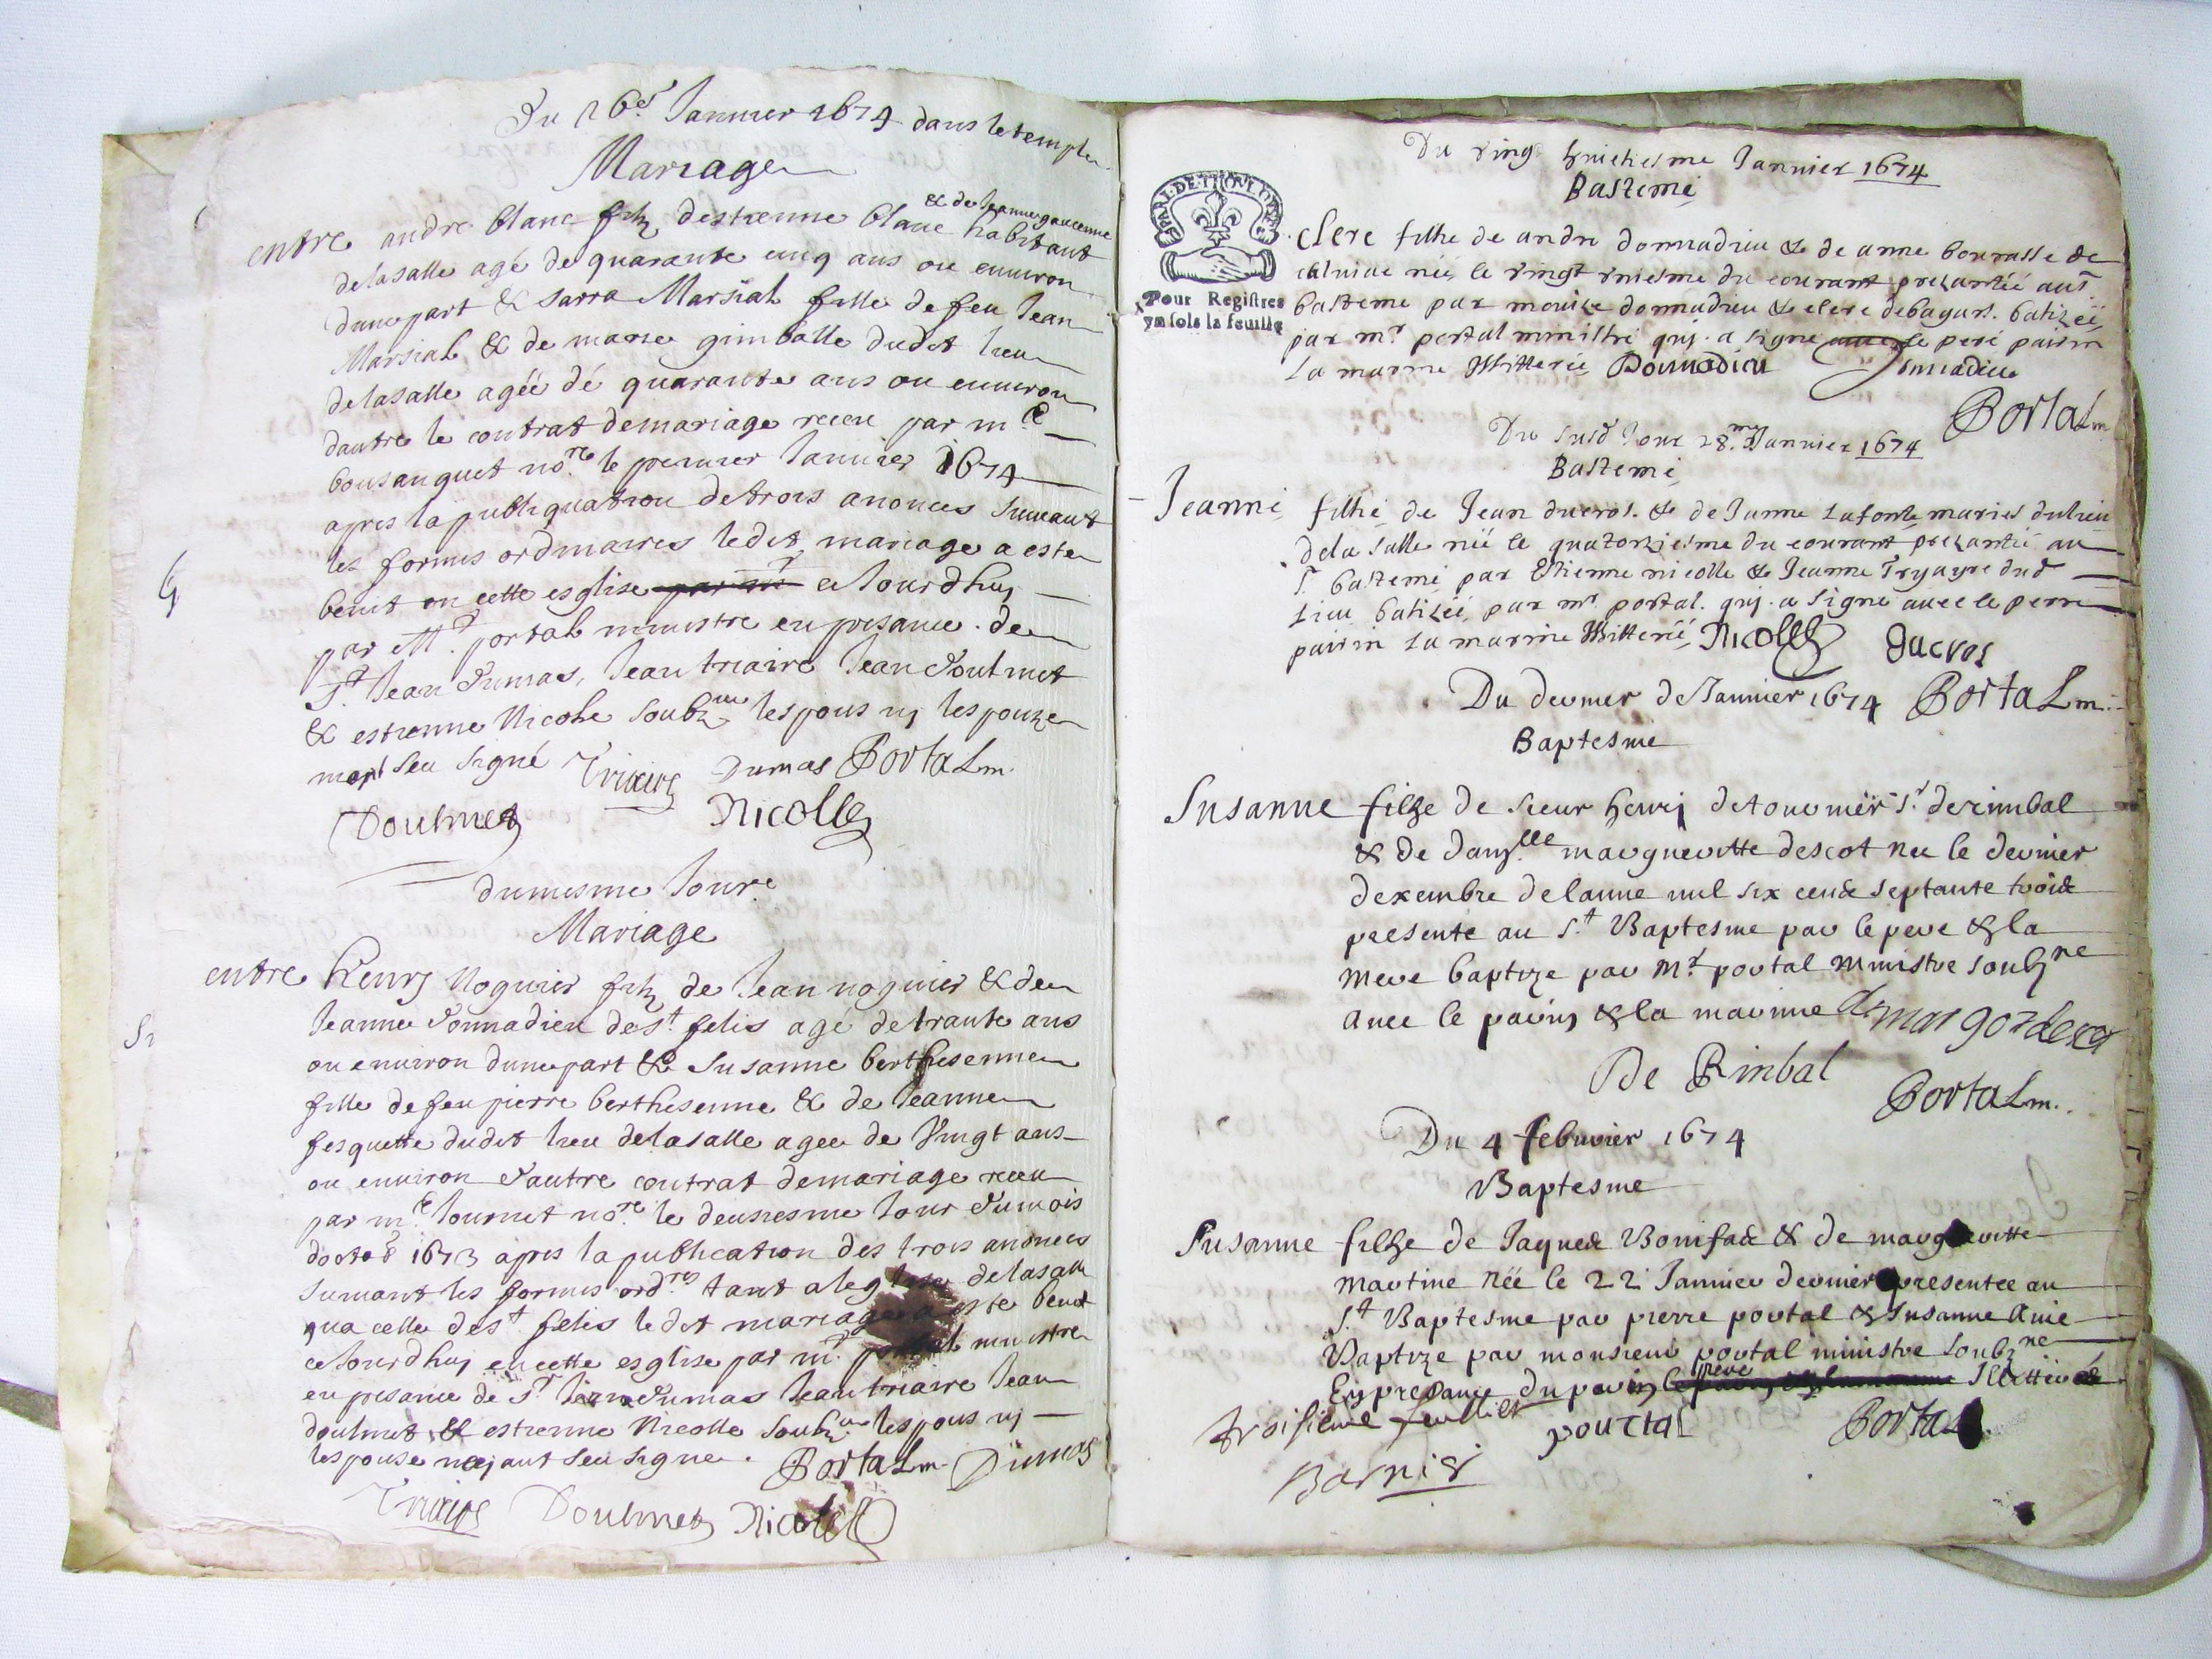 Du 26e Januier 1674 dans le temple
Mariage
& de Jeanne gaucenne
entre andre blanc filz destienne blanc habitant
delasalle agé de quarante cinq ans ou enuiron
dunepart & sarra Marsial fille de feu Jean
Marsial & de marie gimbalte dudit lieu
delasalle agéé dé quarante ans ou enuiron
dautre le contrat demariage receu par me
bousanquet nore le premier Januier 1674
apres la publiquation detrois anonces suiuant
les formes ordinaires ledit mariage a este
benit en cette esglise par mr ce Jourdhuy
par Mr. portal ministre en presance de
Sr Jean Dumas, Jean triaire Jean Doulmet
& estienne Nicolle soubzne lespous ny lespouze
nayant seu signé Triaire Dumas Portal m.
Doulmet Nicolle
dumesme Jour
Mariage
entre henry Noguier filz de Jean noguier & de
Jeanne Donnadieu de st felis agé detrante ans
ou enuiron dunepart & Susanne berthesenne
fille defeu pierre berthesenne & de Jeanne
fesquette dudit lieu delasalle agee de Vingt ans
ou enuiron d'autre contrat demariage receu
par me. Journet nore. le deusiesme Jour dumois
doctob 1673 apres la publication des trois anonces
suiuant les formes ordres tant a leglise delasalle
qua celle de st felis le dit mariage a este benit
ce Jourdhuy en cette esglise par mr. portal ministre
en presance de Sr Jean Dumas Jean triaire Jean
doulmet & estienne Nicolle soubzne lespous ny
lespouse nayant seu signe. Portal m. Dumas
Triaire Doulmet Nicolle
Du vingt huictiesme Januier 1674
Basteme
PAR. DE THOVLOVSE
Pour Registres
vn sols la feuille
Clere filhe de andre donnadieu & de anne bourasse de
née le vingt vniesme du courant prezantéé au st
basteme par mouize donnadieu & clere debagars. batizéé
par mr portal ministre quj. a signé auec le pere pairin
La marine Illitterée Donnadieu Donnadieu
Portal m
Du susd Jour 28.me Januier 1674
Basteme
Jeanne filhe de Jean ducros. & de Janne Lafonte maries du lieu
dela salle née le quatorziesme du courant prezantée au
St. basteme par Etienne nicolle & Jeanne Tryayre dud
Lieu batizéé par mr portal. quj. a signé auec le perre
pairin La marine Illitterée Nicolle ducros
Du dernier de Januier 1674 Portal m.
Baptesme
Susanne filhe de sieur henrj detournier sr derimbal
& de damlle margueritte descot nee le dernier
dexembre delanne mil six cens septante trois
presente au st Baptesme par le pere & la
mere baptize par Mr portal ministre soubzne
auec le parin & la marrine
De Rimbal
Portal m.
Du 4 febvrier 1674
Baptesme
Susanne filhe de Jaques Bonifas & de margueritte
martine née le 22 Januier dernier presentee au
st Baptesme par pierre portal & Susanne
Baptize par monsieur portal ministre soubzne
pere
En presance du parin Illitterés
troisiesme feuillet pourtal Portal
Barnier